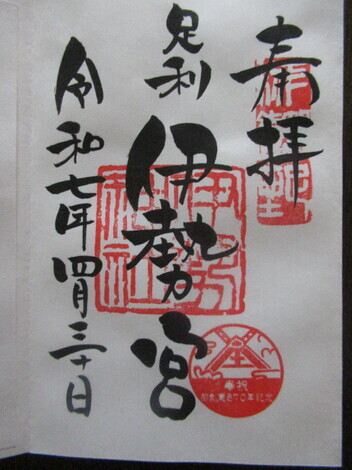 奉拝
足利
伊勢宮
伊勢神社
奉祝
令和七年四月三十日